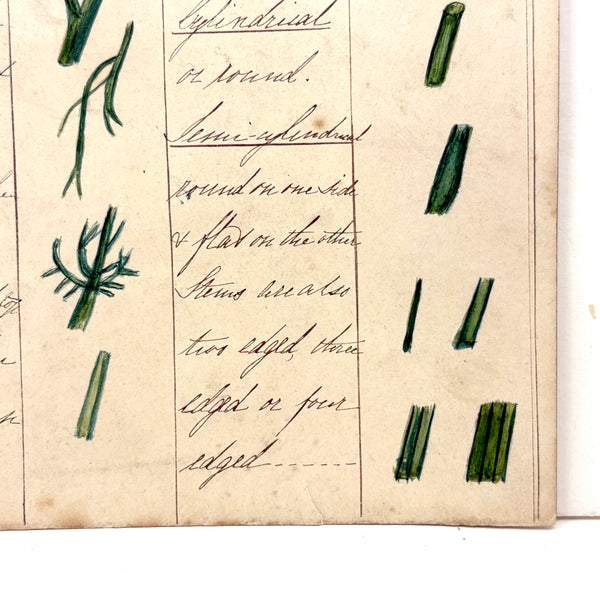 Cylindrical
or round.
Semi-cylindrical
round on one side
& flat on the other
Stems are also
two edged, three
edged or four
edged ------